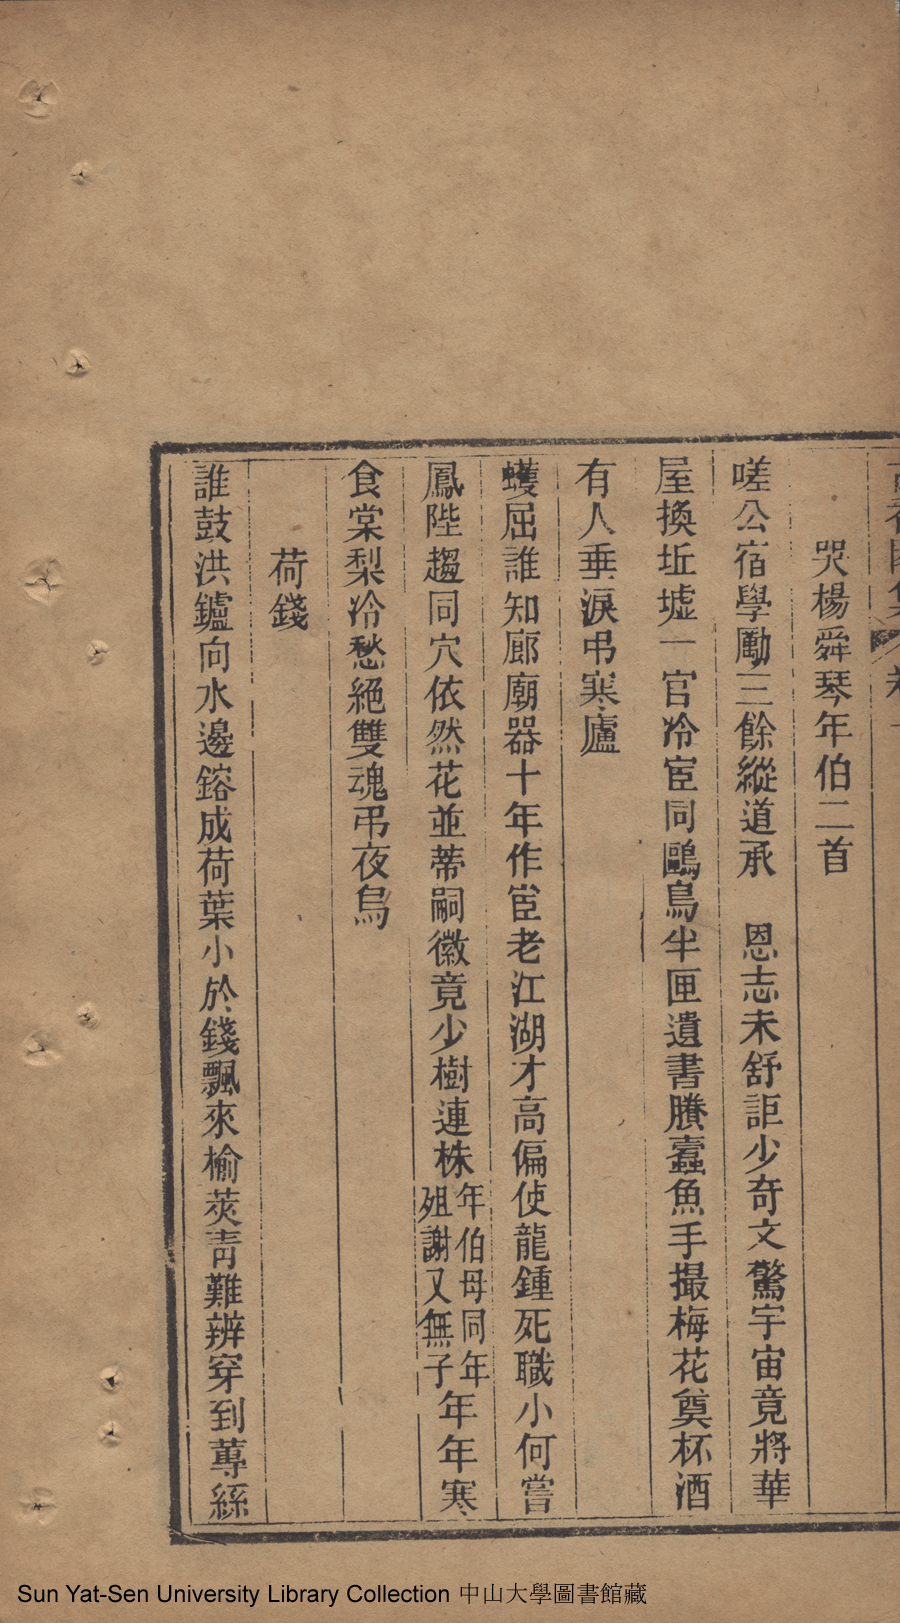 哭楊舜琴年伯二首
嗟公宿學勵三餘縱道承　恩志未舒詎少奇文驚宇宙竟將華
屋換坵墟一官冷宦同鷗鳥半匣遺書賸蠹魚手撮梅花奠杯酒
有人垂淚弔寒廬
蠖屈誰知廊廟器十年作宦老江湖才高偏使龍鍾死職小何嘗
鳳陛趨同穴依然花並蒂嗣徽竟少樹連株年伯母同年殂謝又無子年年寒
食棠梨冷愁絕雙魂弔夜烏
荷錢
誰鼓洪鑪向水邊鎔成荷葉小於錢飄來榆莢青難辨穿到蓴絲
Sun Yat-Sen University Library Collection 中山大學圖書館藏